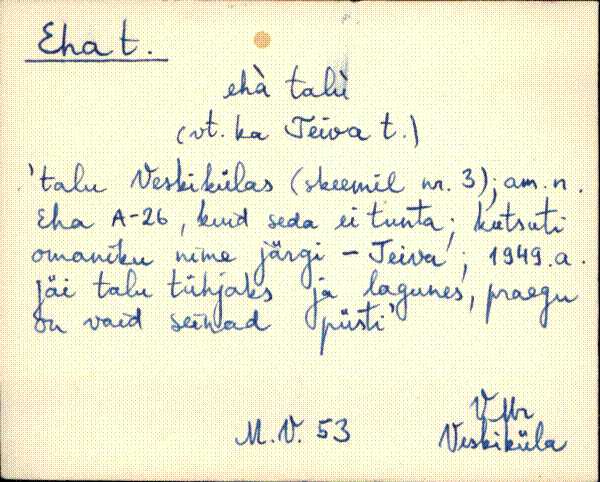 Eha t.
ehà talù
(vt. ka Teiva t.)
'talu Veskikülas (skeemil nr. 3); am. n.
Eha A-26, kuid seda ei tunta; kutsuti
omaniku nime järgi - Teiva; 1949. a.
jäi talu tühjaks ja lagunes, praegu
on vaid seinad püsti'
V Mr
M. V. 53
Veskiküla